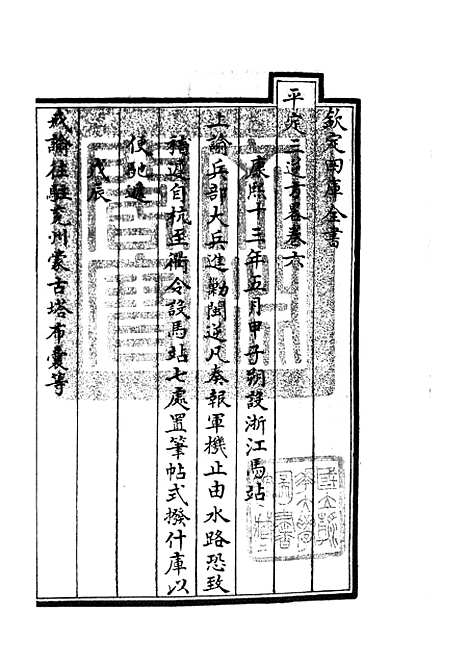 欽定四庫全書
平定三逆方畧卷六
康熙十三年五月甲子朔設浙江馬站
上諭兵部大兵進勦閩逆凡奏報軍機止由水路恐致
稽遲自杭至衢令設馬站七處置筆帖式撥什庫以
便馳遞
戊辰
戒諭往駐兖州蒙古塔布囊等